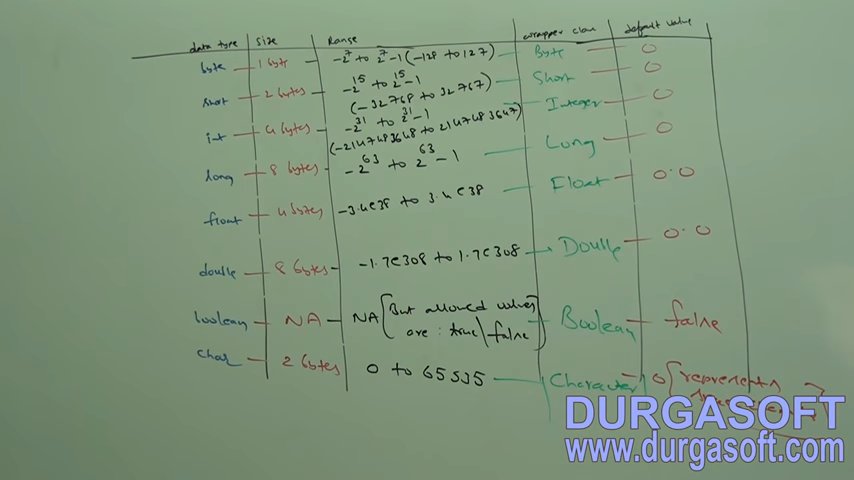 data type size Range wrapper class default value
byte 1 byte -2^7 to 2^7-1 (-128 to 127) Byte 0
short 2 bytes -2^15 to 2^15-1 Short 0
(-32768 to 32767)
int 4 bytes -2^31 to 2^31-1 Integer 0
(-2147483648 to 2147483647)
long 8 bytes -2^63 to 2^63-1 Long 0
float 4 bytes -3.4e38 to 3.4e38 Float 0.0
double 8 bytes -1.7e308 to 1.7e308 Double 0.0
boolean NA NA [But allowed values Boolean false
are: true|false]
char 2 bytes 0 to 65535 Character 0 [represents
DURGASOFT
www.durgasoft.com